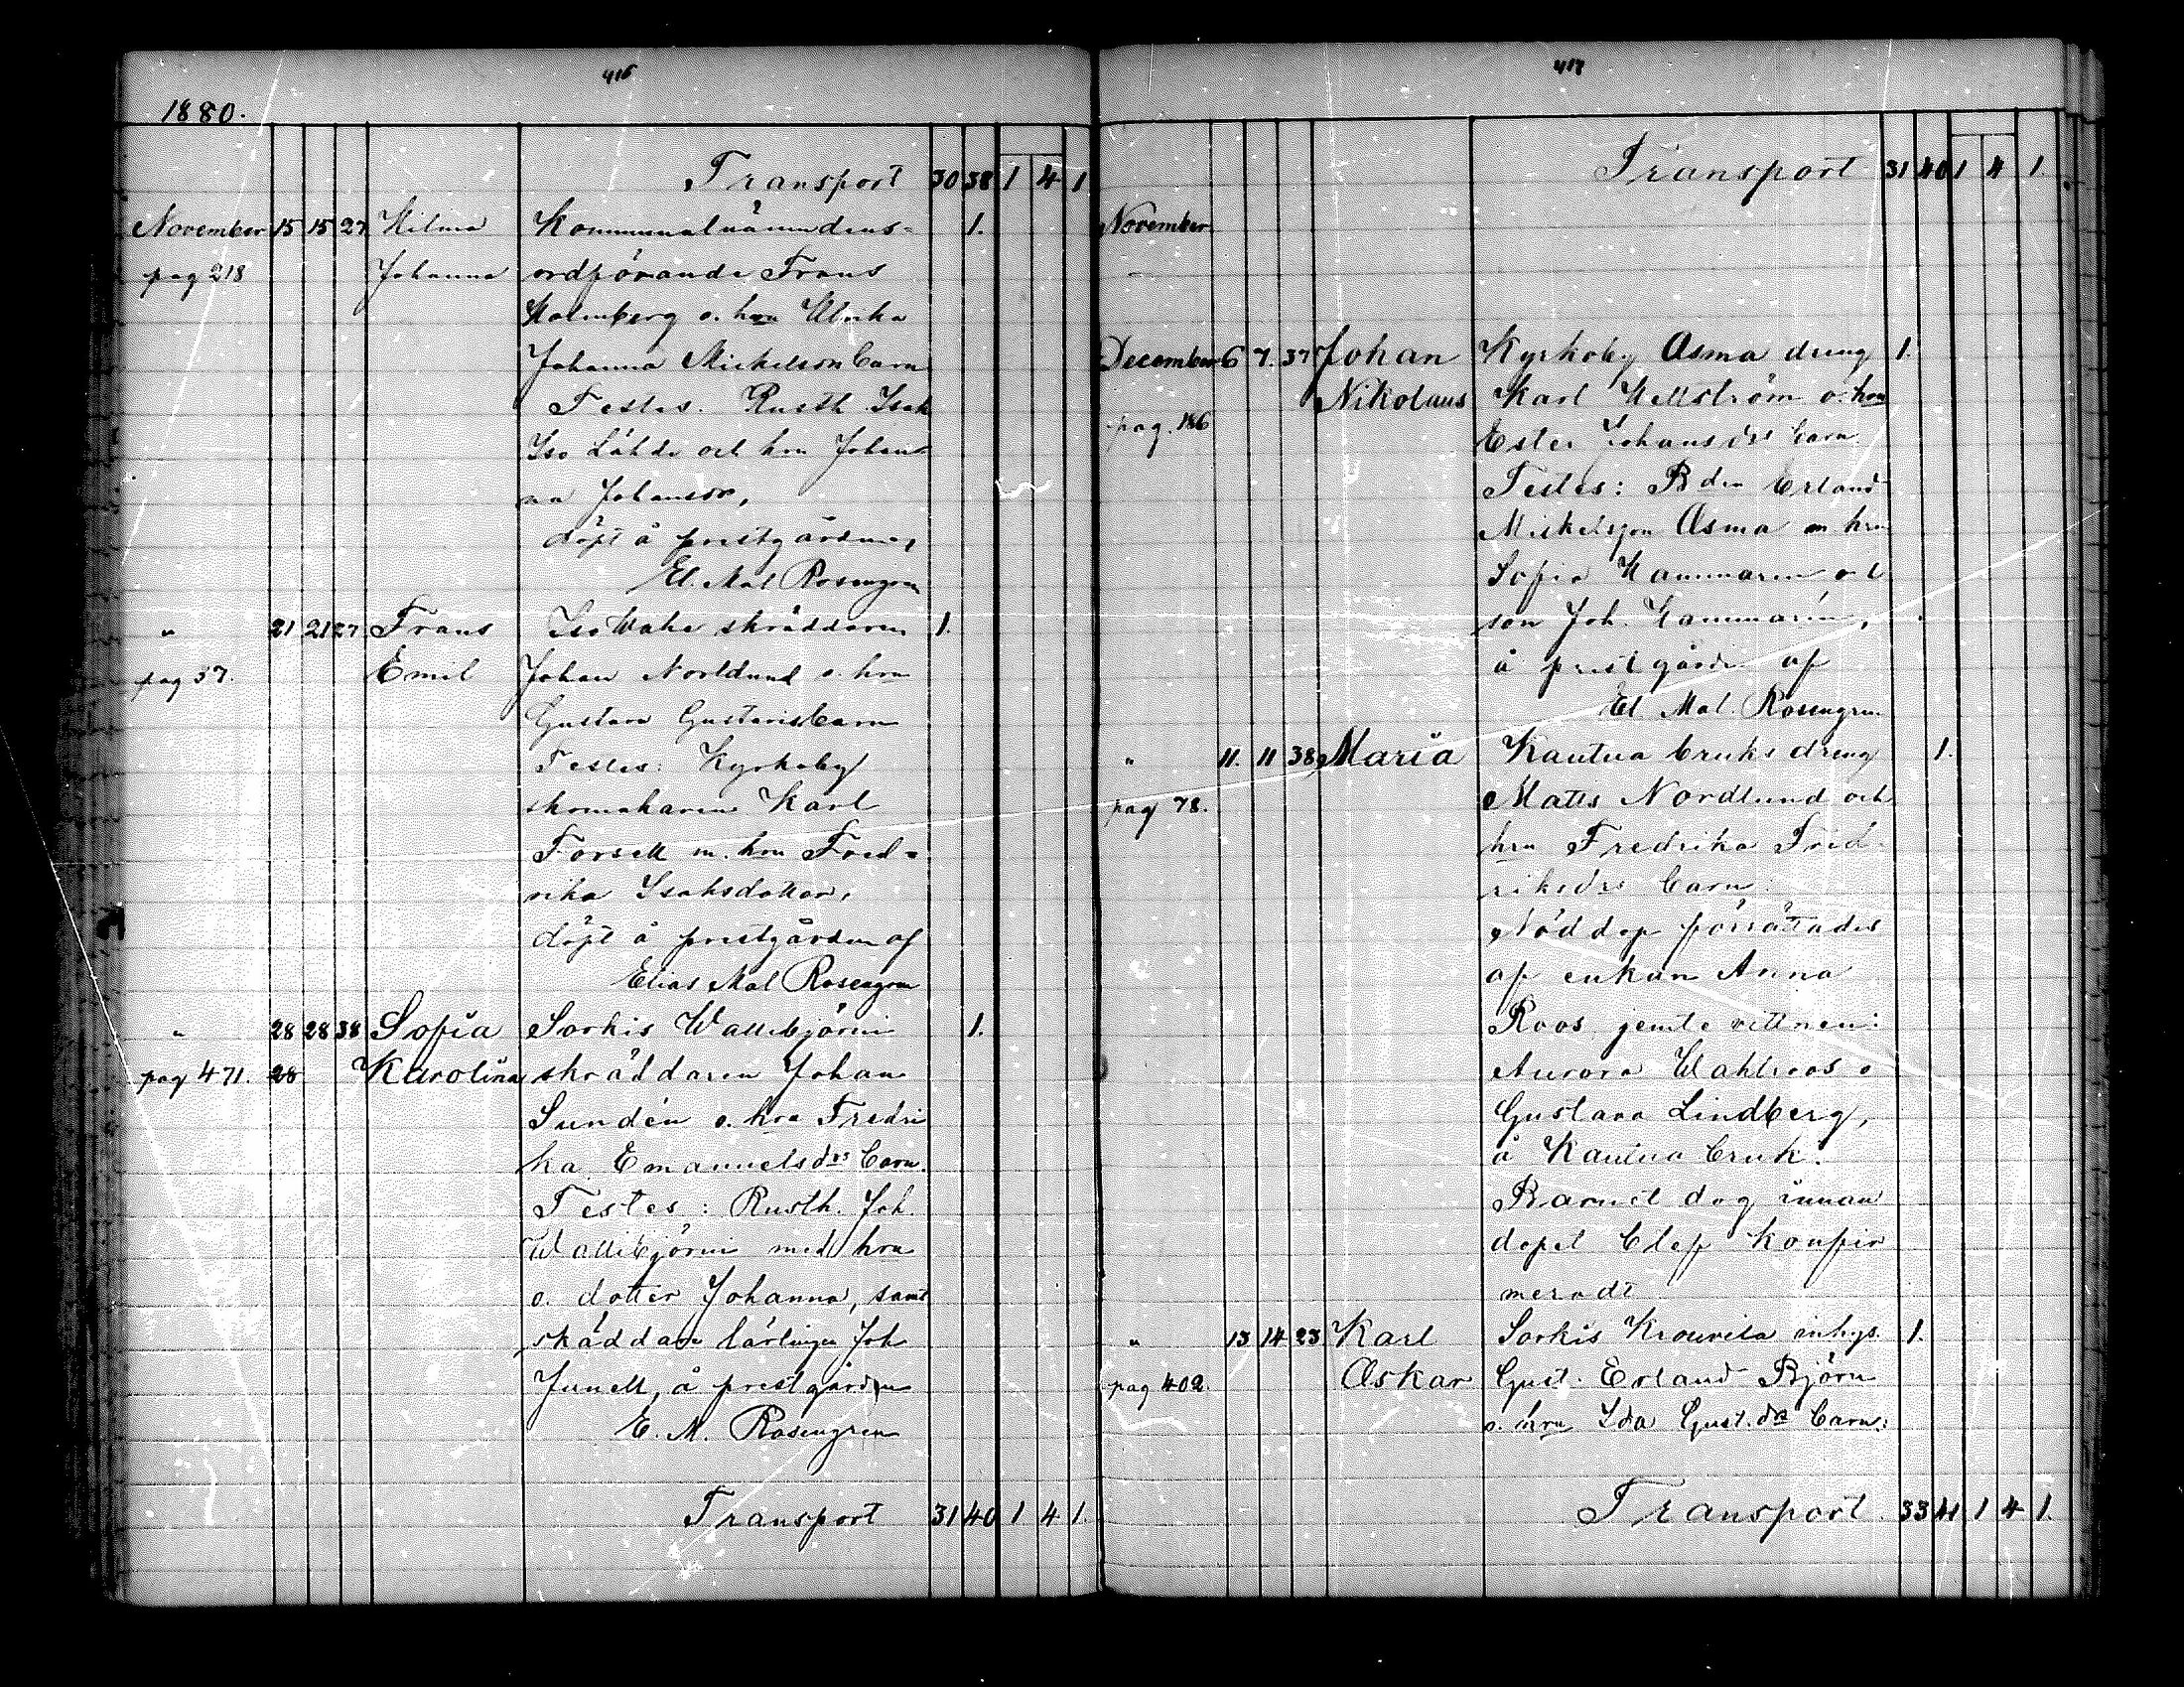 416
1880.
Transport 30 38 1 4 1
November 15 15 27 Hilma Kommunalnämndens- 1.
pag 218 Johanna ordförande Frans
Holmberg o. hru Ulrika
Johanna Mickelson barn
Testes. Rusth. Isak
Iso Lähde och hru Johan-
na Johansdr,
döpt å prestgården,
El. Mal Rosengren
" 21 21 27 Frans Iso Wahe skräddaren 1.
pag 37. Emil Johan Nordlund o. hru
Gustava Gustavis barn
Testes: Kyrkoby
skomakaren Karl
Forsell m. hru Fred-
rika Isaksdotter,
döpt å prestgården af
Elias Mal Rosengren
" 28 28 38 Sofia Sorkis Wallibjörni 1.
pag 471. 28 Karolina skräddaren Johan
Sundén o. hru Fredri
ka Emanuelsdrs barn.
Testes: Rusth. Joh.
Wallibjörni med hru
o. dotter Johanna, samt
skäddare lärlingen Joh
Junell, å prestgården
E. M. Rosengren
Transport 31 40 1 4 1.
417
Transport 31 40 1 4 1.
November
December 6 7. 37 Johan Kyrkoby Asma dreng 1.
pag. 186 Nikolaus Karl Hellström o. hru
Ester Johansdrs barn.
Testes: Bden Erland
Mickelsson Asma m hru
Sofia Hammarén och
son Joh. Hammarén,
å prestgården af
El. Mal. Rosengren
" 11. 11 38 Maria Kautua bruks dreng 1.
pag 78. Matts Nordlund och
hru Fredrika Fred-
riksdrs barn:
Nöddop förrättades
af enkan Anna
Roos jemte vittnen:
Aurora Wahlroos o
Gustava Lindberg,
å Kautua bruk.
Barnet dog innan
dopet blef konfir
meradt
" 13 14 23 Karl Sorkis Krouvila inhys. 1.
pag 402. Oskar Gust. Erland Björn
o. hru Ida Gust.drs barn:
Transport 33 41 1 4 1.